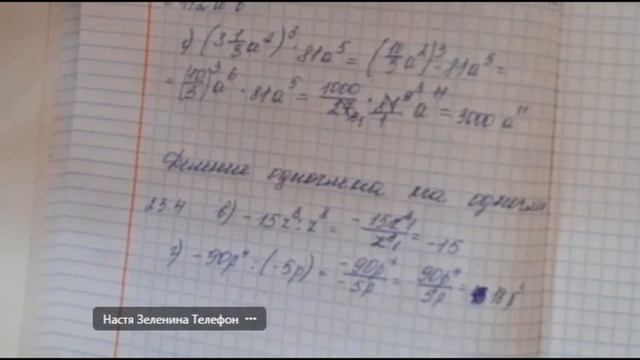 г) (3 1/3 a²)³ · 81a⁵ = (10/3 a²)³ · 81a⁵ =
= (10/3)³ a⁶ · 81a⁵ = 1000/27 · 81/1 a¹¹ = 3000 a¹¹
Деление одночлена на одночлен
23.4 в) -15z⁸ : z⁸ = -15z⁸/z⁸ = -15
г) -90p⁴ : (-5p) = -90p⁴/-5p = 90p⁴/5p =
Настя Зеленина Телефон